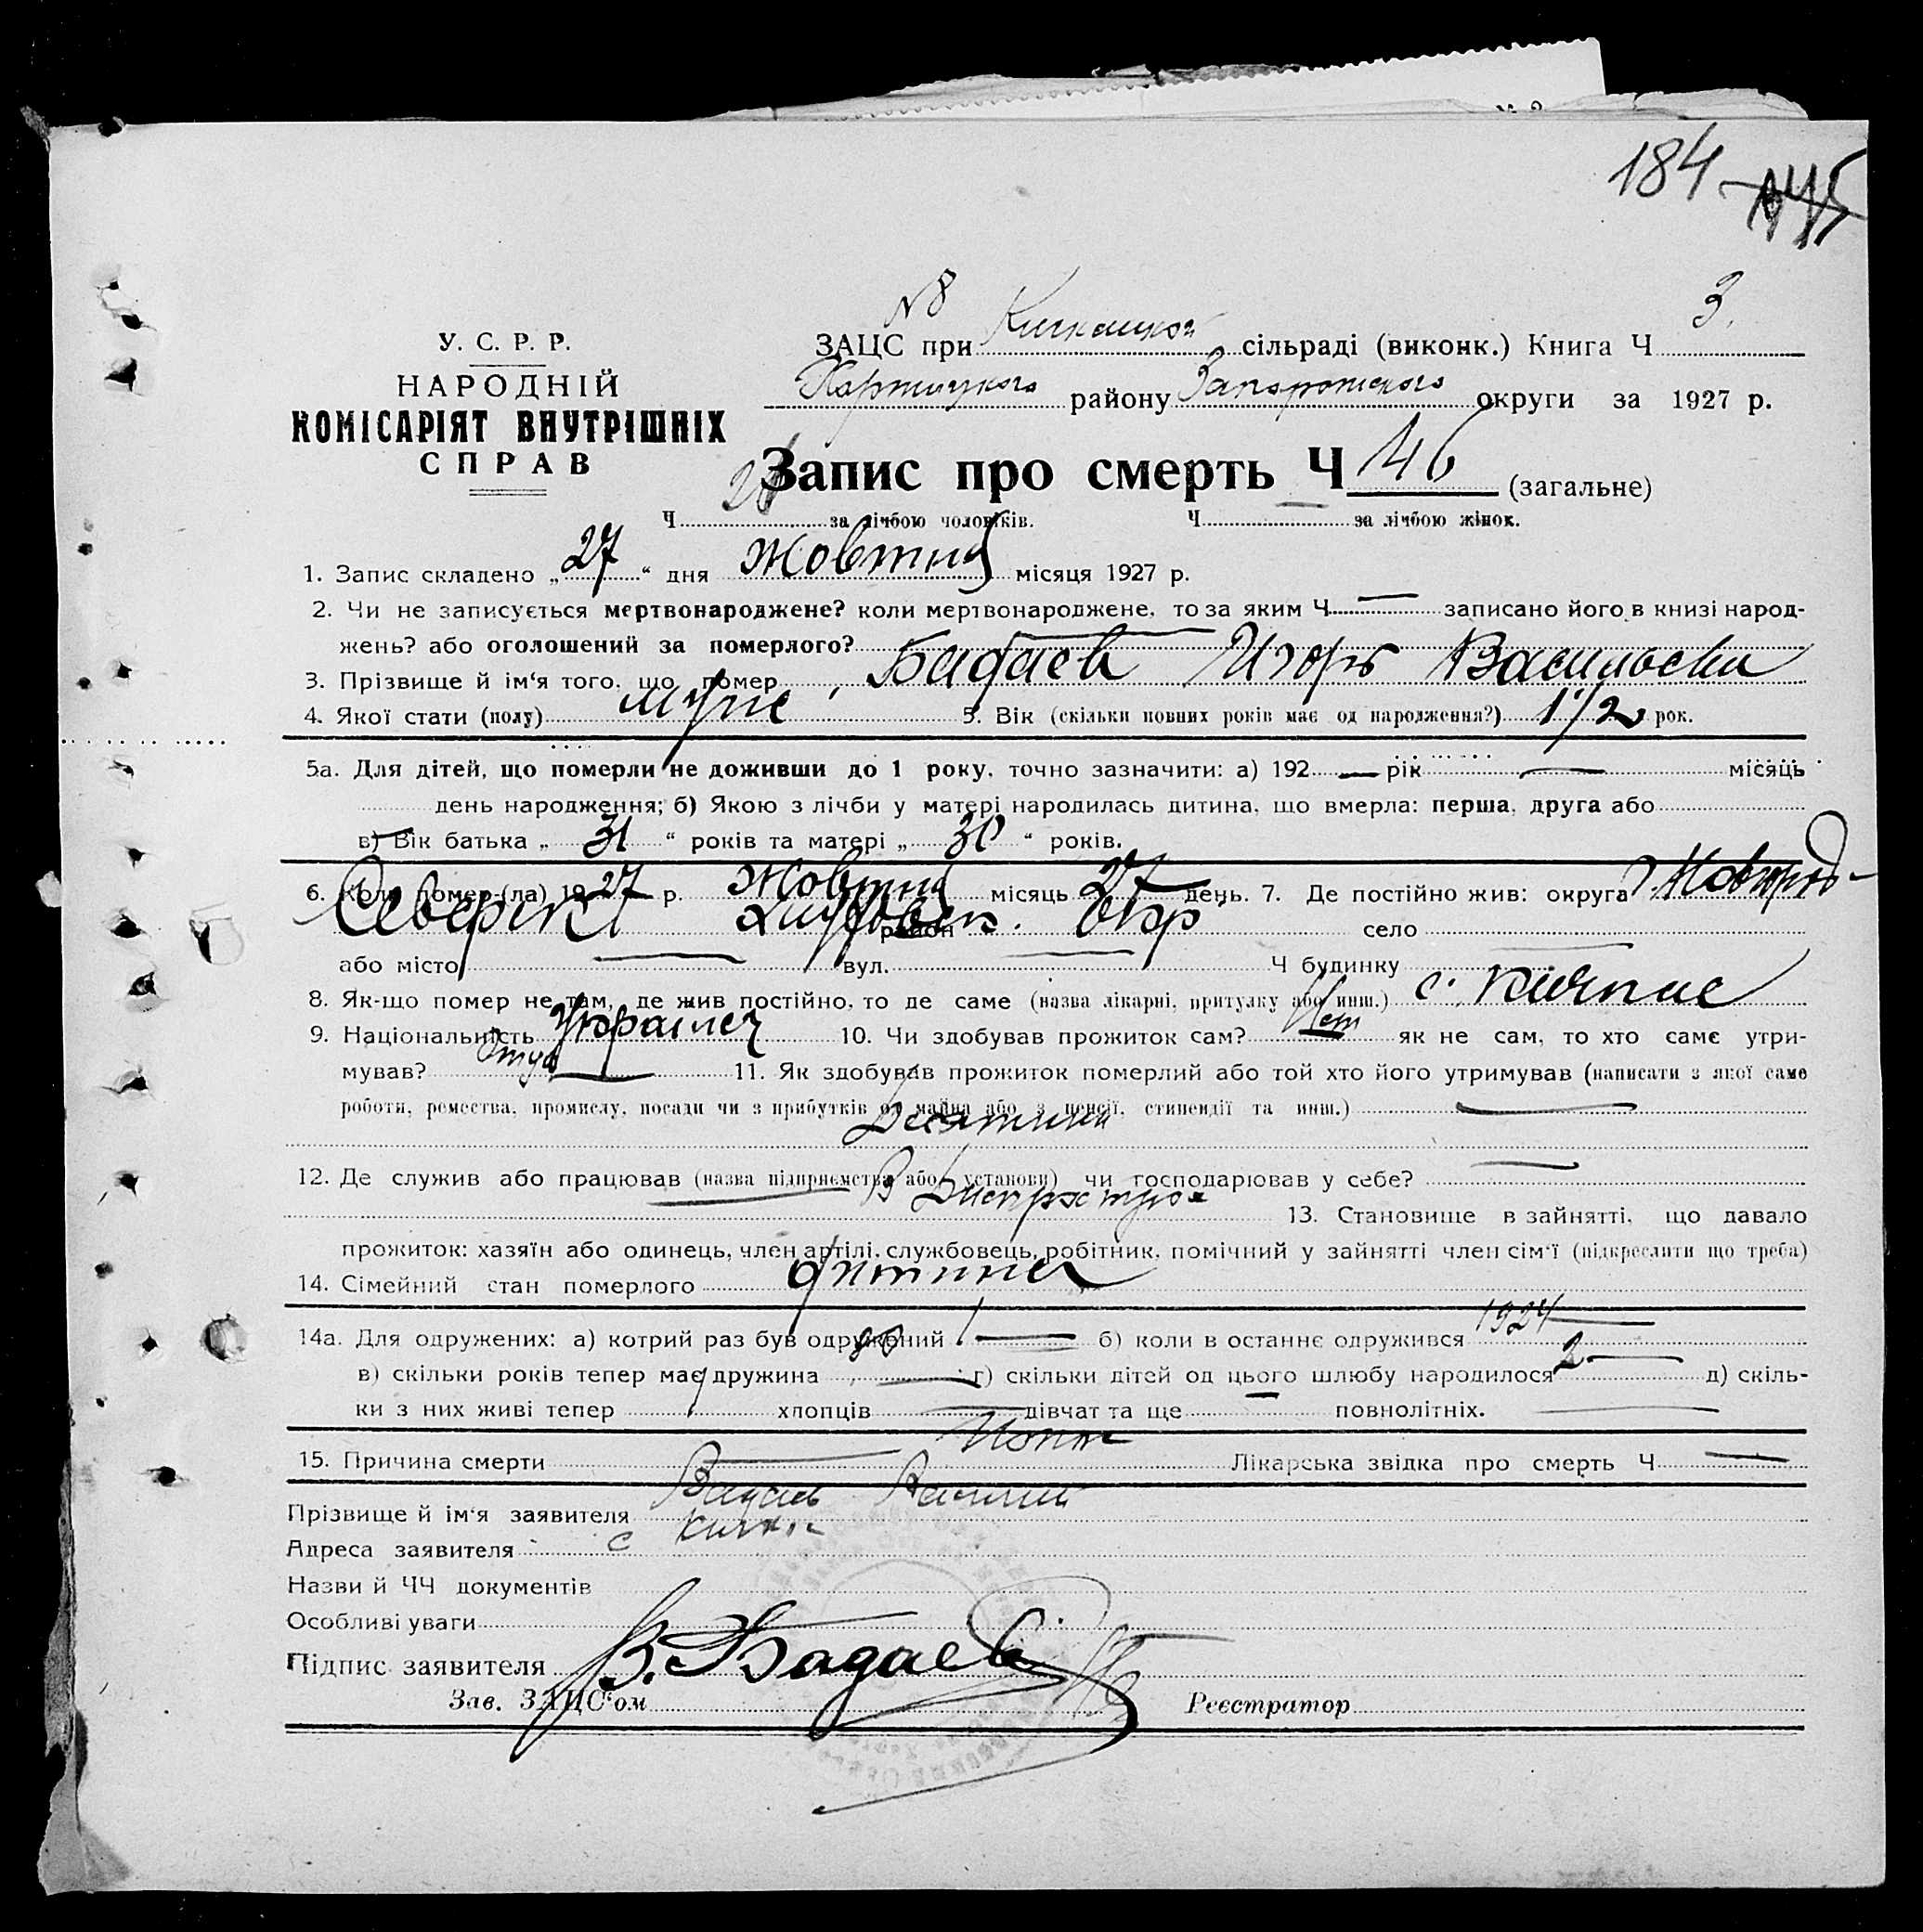 184
№ 8
У. С. Р. Р.
НАРОДНІЙ
КОМІСАРІЯТ ВНУТРІШНІХ
СПРАВ
ЗАЦС при Кичкаської сільраді (виконк.) Книга Ч 3.
Хортицкого району Запорожского округи за 1927 р.
Запис про смерть Ч 46 (загальне)
Ч за лічбою чоловіків. Ч — за лічбою жінок.
1. Запис складено „27“ дня жовтня місяця 1927 р.
2. Чи не записується мертвонароджене? коли мертвонароджене, то за яким Ч — записано його в книзі народ-
жень? або оголошений за померлого? —
3. Прізвище й ім'я того, що помер Бадаев Игорь Васильевич
4. Якої стати (полу) муже 5. Вік (скільки повних років має од народження?) 1 1/2 рок.
5а. Для дітей, що померли не доживши до 1 року, точно зазначити: а) 192 — рік — місяць
день народження; б) Якою з лічби у матері народилась дитина, що вмерла: перша, друга або
в) Вік батька „31“ років та матері „30“ років.
6. Коли помер (ла) 1927 р. жовтня місяць 27 день. 7. Де постійно жив: округа г. Новгород-
Северск район окр село
або місто — вул. — Ч будинку —
8. Як-що помер не там, де жив постійно, то де саме (назва лікарні, притулку або инш.) с. Кичкас
9. Національність Украинец 10. Чи здобував прожиток сам? Нет як не сам, то хто саме утри-
мував? Отец 11. Як здобував прожиток померлий або той хто його утримував (написати з якої саме
роботи, ремества, промислу, посади чи з прибутків од майна або з пенсії, стипендії та инш.) —
12. Де служив або працював (назва підприємства або установи) чи господарював у себе? —
В Днепрострое 13. Становище в зайнятті, що давало
прожиток: хазяїн або одинець, член артілі, службовець, робітник, помічний у зайнятті член сім'ї (підкреслити що треба)
14. Сімейний стан померлого дитина
14а. Для одружених: а) котрий раз був одружений 1 — б) коли в останнє одружився 1924
в) скільки років тепер має дружина 30 — г) скільки дітей од цього шлюбу народилося 2 — д) скіль-
ки з них живі тепер 1 хлопців — дівчат та ще — повнолітніх. —
15. Причина смерти — Лікарська звідка про смерть Ч —
Прізвище й ім'я заявителя Бадаев Василий
Адреса заявителя с Кичкас
Назви й ЧЧ документів
Особливі уваги
Підпис заявителя В. Бадаев
Зав. ЗАЦС'ом Реєстратор